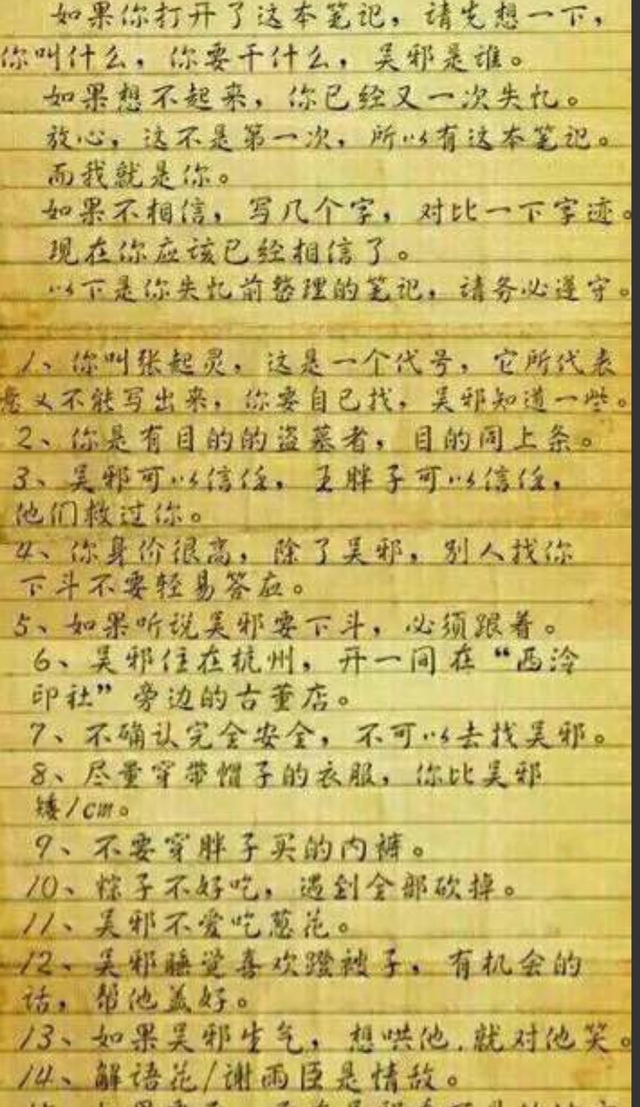 如果你打开了这本笔记，请先想一下，
你叫什么，你要干什么，吴邪是谁。
如果想不起来，你已经又一次失忆。
放心，这不是第一次，所以有这本笔记。
而我就是你。
如果不相信，写几个字，对比一下字迹。
现在你应该已经相信了。
以下是你失忆前整理的笔记，请务必遵守。
1、你叫张起灵，这是一个代号，它所代表
意义不能写出来，你要自己找，吴邪知道一些。
2、你是有目的的盗墓者，目的同上条。
3、吴邪可以信任，王胖子可以信任，
他们救过你。
4、你身价很高，除了吴邪，别人找你
下斗不要轻易答应。
5、如果听说吴邪要下斗，必须跟着。
6、吴邪住在杭州，开一间在“西泠
印社”旁边的古董店。
7、不确认完全安全，不可以去找吴邪。
8、尽量穿带帽子的衣服，你比吴邪
矮1cm。
9、不要穿胖子买的内裤。
10、粽子不好吃，遇到全部砍掉。
11、吴邪不爱吃葱花。
12、吴邪睡觉喜欢蹬被子，有机会的
话，帮他盖好。
13、如果吴邪生气，想哄他，就对他笑。
14、解语花/谢雨臣是情敌。